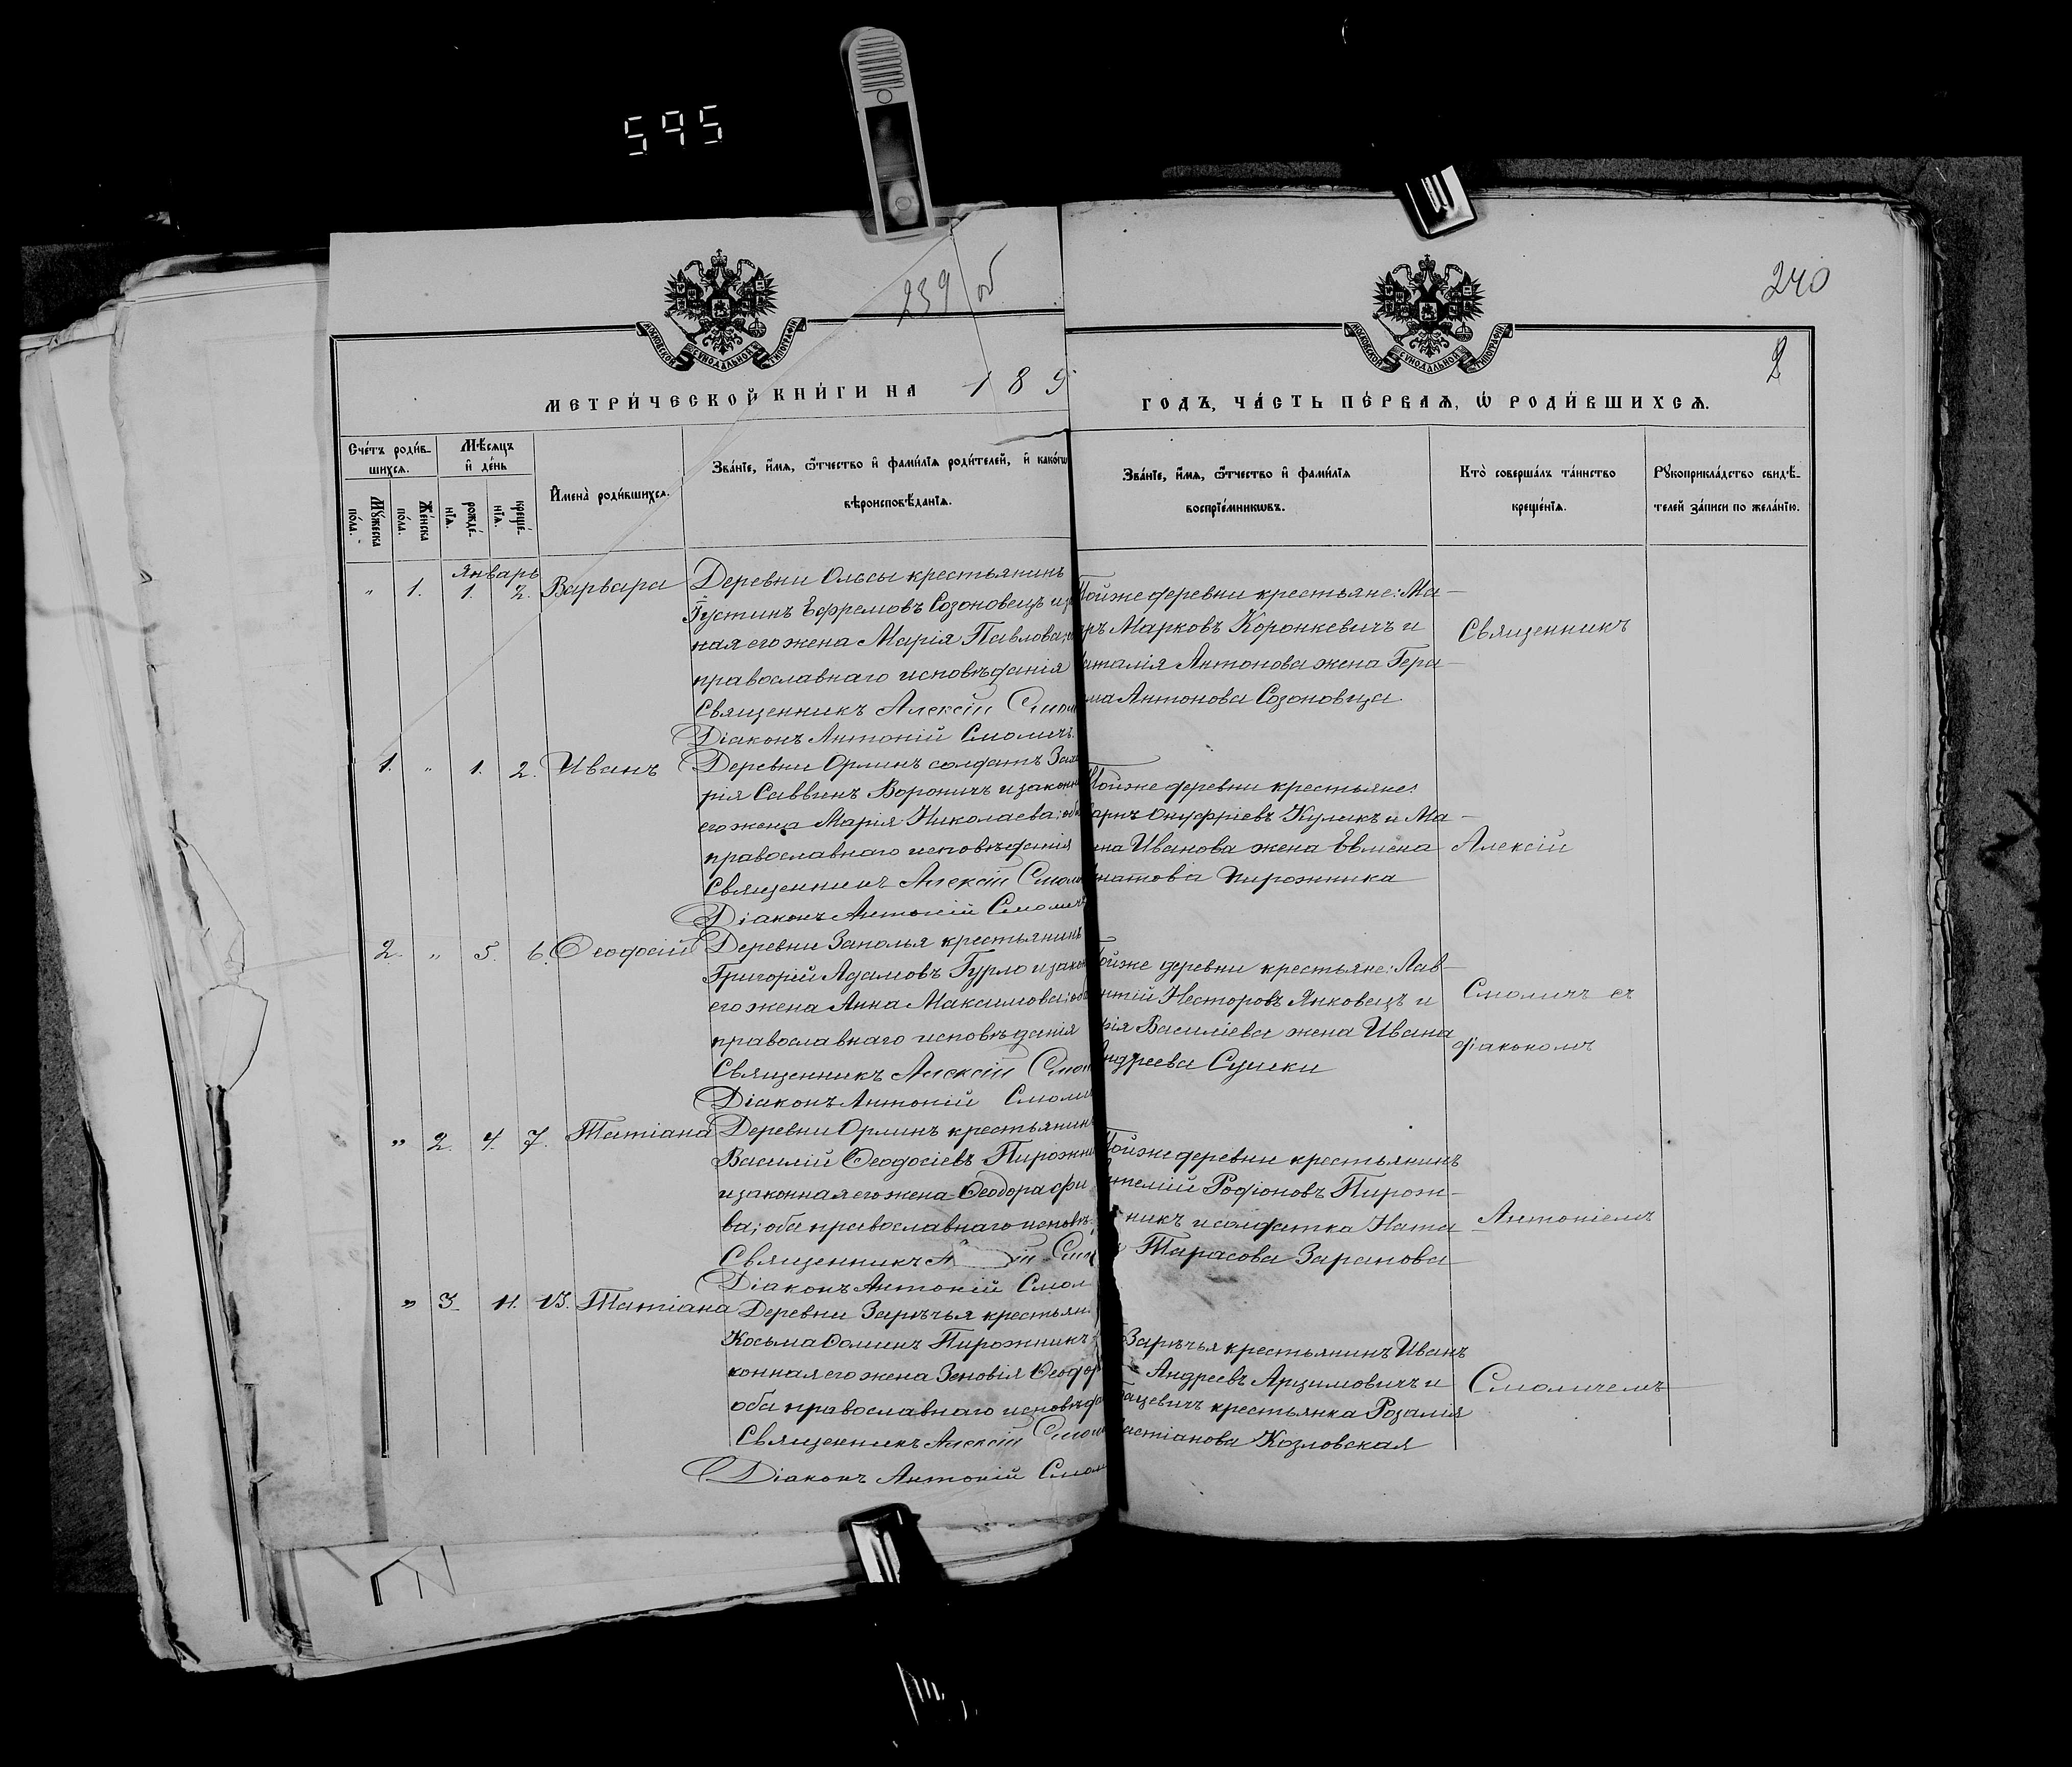 595
239 об
240
МОСКОВСКОЙ СУНОДАЛЬНОЙ ТИПОГРАФІИ
МОСКОВСКОЙ СУНОДАЛЬНОЙ ТИПОГРАФІИ
2
МЕТРИ́ЧЕСКОЙ КНИ́ГИ НА 189
ГОДЪ, ЧА́СТЬ ПЕ́РВАѦ, Ѡ РОДИ́ВШИХСѦ.
Сче́тъ роди́в-
шихсѧ.
Му́жеска по́ла.
Же́нска по́ла.
Мѣ́сѧцъ
и҆ де́нь
рожде́-нїѧ.
креще́-нїѧ.
И҆мена̀ роди́вшихсѧ.
Зва́нїе, и҆́мѧ, ѻ҆́тчество и҆ фами́лїѧ роди́телей, и҆ како́гѡ
вѣроисповѣ́данїѧ.
Зва́нїе, и҆́мѧ, ѻ҆́тчество и҆ фами́лїѧ
воспрїе́мникѡвъ.
Кто̀ соверша́лъ та́инство
креще́нїѧ.
Рꙋкоприкла́дство свидѣ́-
телей за́писи по жела́нїю.
Январь
" 1. 1. 2. Варвара
Деревни Ольсы крестьянинъ
Густинъ Ефремовъ Созоновецъ и
ная его жена Марія Павлова;
православнаго исповѣданія
Священникъ Алексій Смол
Діаконъ Антоній Смоличъ.
Тойже деревни крестьяне: Ма-
аръ Марковъ Коронкевичъ и
аталія Антонова жена Гера-
има Антонова Созоновца
Священникъ
1. " 1. 2. Иванъ
Деревни Орлинъ солдатъ Заха
рія Саввинъ Вороничъ и законн
его жена Марія Николаева; об
православнаго исповѣданія
Священникъ Алексій Смол
Діаконъ Антоній Смоличъ
Тойже деревни крестьяне:
Онуфріевъ Куликъ и Ма-
Иванова жена Евмена
Пирожника
Алексій
2. " 5. 6. Ѳеодосій
Деревни Заполья крестьянинъ
Григорій Адамовъ Гурло и закон
его жена Анна Максимова; об
православнаго исповѣданія
Священникъ Алексій Смол
Діаконъ Антоній Смоли
Тойже деревни крестьяне: Лав-
ентій Несторовъ Янковецъ и
рія Василіева жена Ивана
Андреева Сушки
Смоличъ съ
діакономъ
" 2. 4. 7. Татіана
Деревни Орлинъ крестьянинъ
Василій Ѳеодосіевъ Пирожни
и законная его жена Ѳеодора
ва; оба православнаго исповѣ
Священникъ А ій Смо
Діаконъ Антоній Смол
Тойже деревни крестьянинъ
Родіоновъ Пирож-
никъ и солдатка Ната-
Тарасова Заранова
Антоніемъ
" 3. 11. 13. Татіана
Деревни Зарѣчья крестьян
Косьма Ѳоминъ Пирожникъ
конная его жена Зеновія Ѳеодор
оба православнаго исповѣда
Священникъ Алексій Смол
Діаконъ Антоній Смол
Зарѣчья крестьянинъ Иванъ
Андреевъ Арцимовичъ и
крестьянка Розалія
астіанова Козловская
Смоличемъ